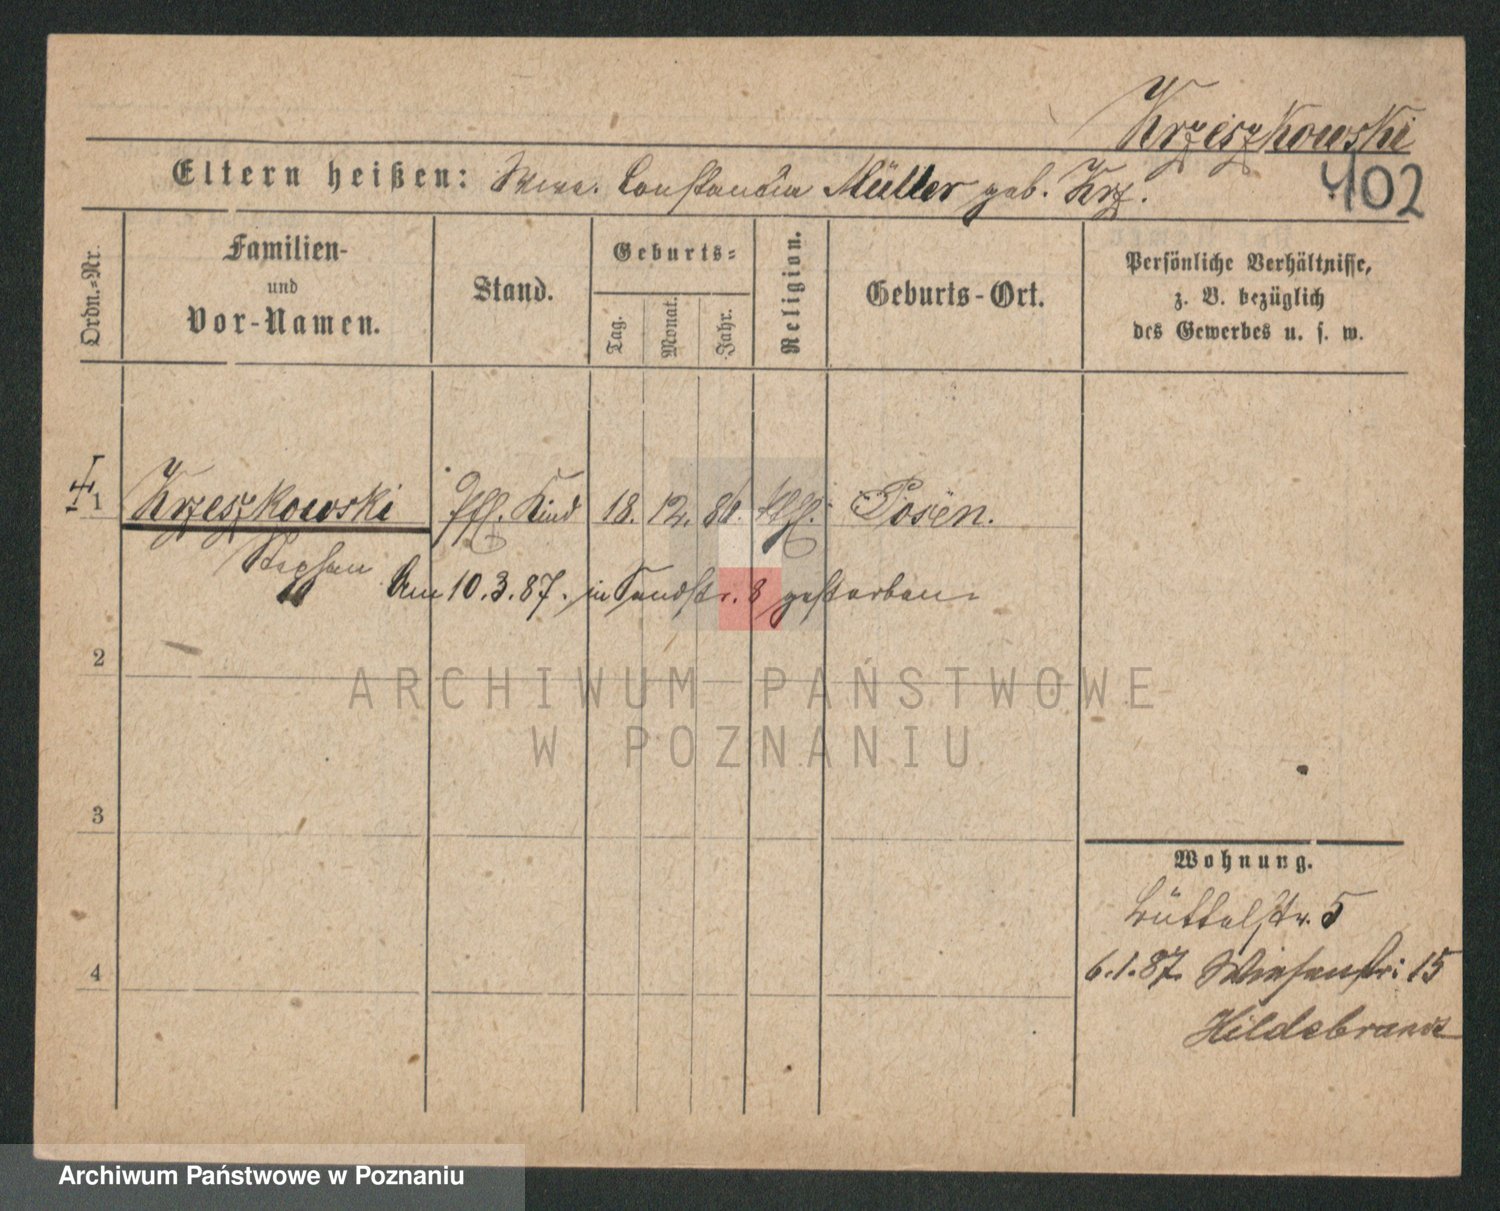 Krzeszkowski
402
Eltern heißen: Wwe. Constantia Müller geb. Krz.
Ordn.-Nr.
Familien-
und
Vor-Namen.
Stand.
Geburts-
Tag.
Monat.
Jahr.
Religion.
Geburts-Ort.
Persönliche Verhältnisse,
z. B. bezüglich
des Gewerbes u. s. w.
1 Krzeszkowski Kind 18. 12. 86. kth. Posen.
Stephan
Am 10.3.87. in Sandstr. 8 gestorben.
2
ARCHIWUM PAŃSTWOWE
W POZNANIU
3
Wohnung.
Büttelstr. 5
4
6.1.87. Wiesenstr: 15
Hildebrandt
Archiwum Państwowe w Poznaniu